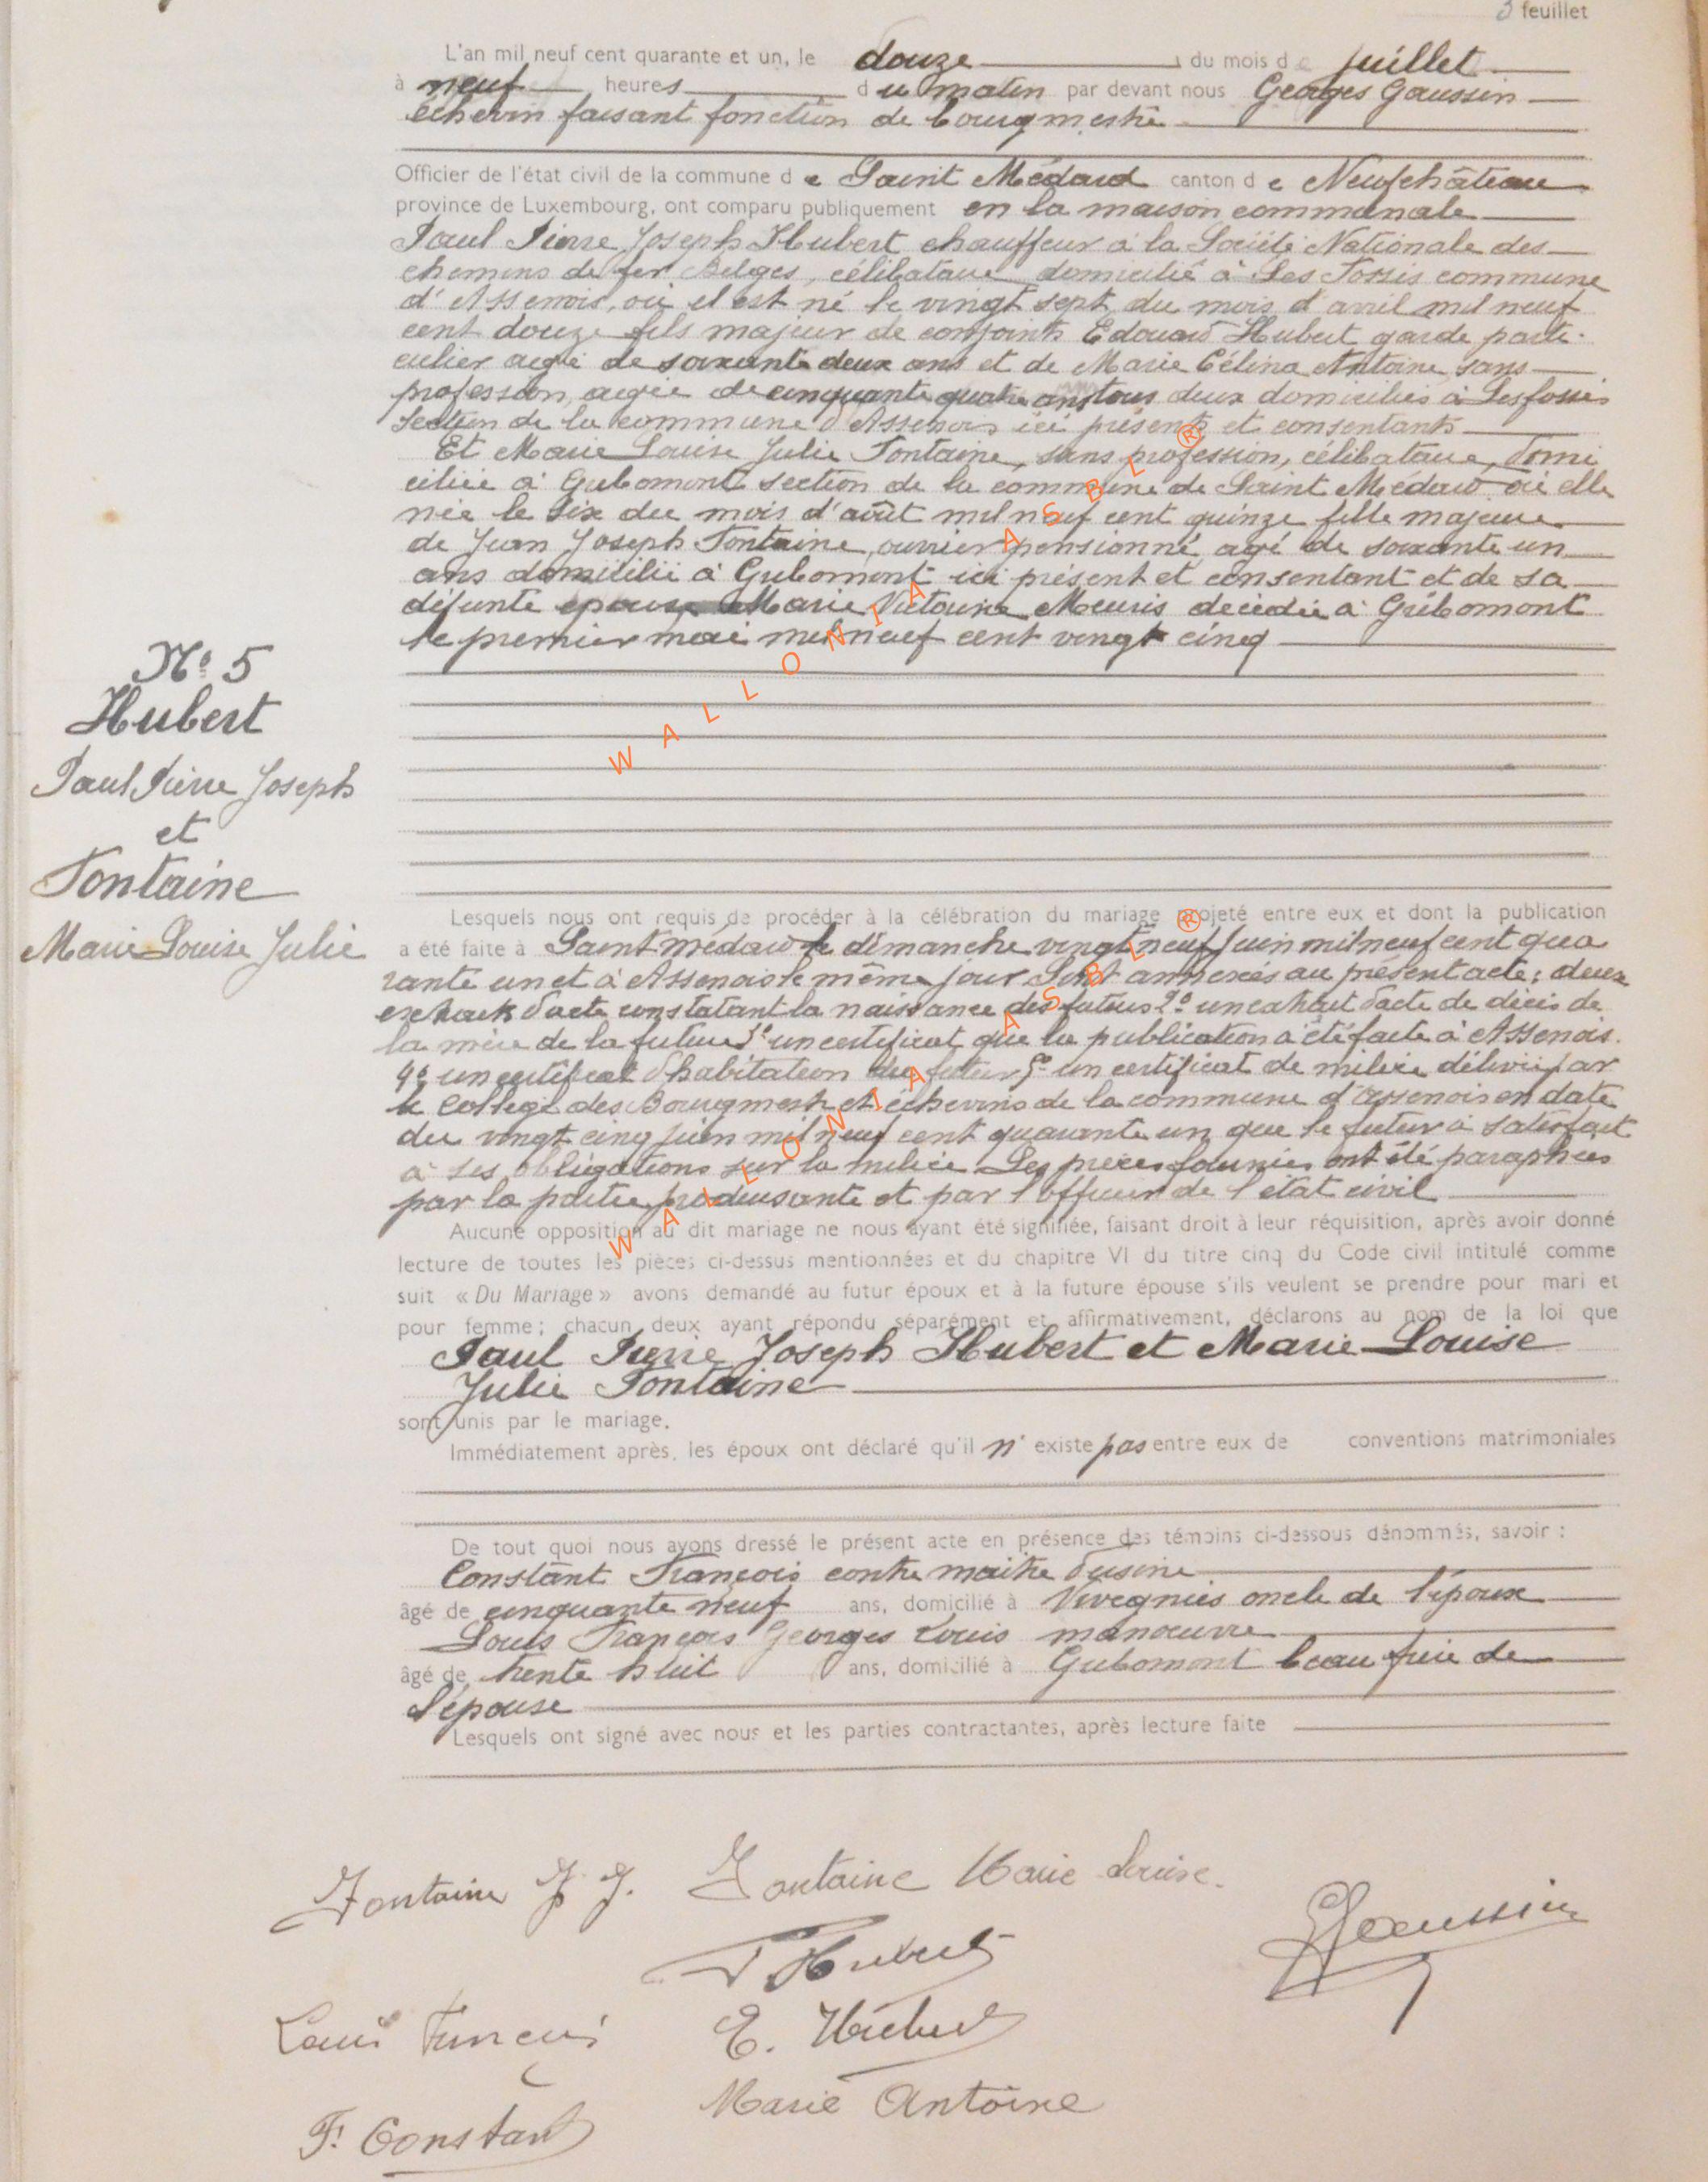 3 feuillet
L'an mil neuf cent quarante et un, le douze du mois de juillet
à neuf heures du matin par devant nous Georges Gaussin
échevin faisant fonction de bourgmestre
Officier de l'état civil de la commune de Saint Médard canton de Neufchâteau
province de Luxembourg, ont comparu publiquement en la maison communale
Paul Pierre Joseph Hubert chauffeur à la Société Nationale des
chemins de fer Belges, célibataire domicilié à Les Fossés commune
d'Assenois, où il est né le vingt sept du mois d'avril mil neuf
cent douze fils majeur de conjoints Edouard Hubert garde parti-
culier agé de soixante deux ans et de Marie Célina Antoine sans
profession, agée de cinquante quatre ans tous deux domiciliés à Lesfossés
section de la commune d'Assenois ici présents et consentants
Et Marie Louise Julie Fontaine, sans profession, célibataire, domi
ciliée à Gribomont section de la commune de Saint Médard où elle
née le six du mois d'août mil neuf cent quinze fille majeure
de Jean Joseph Fontaine, ouvrier pensionné agé de soixante un
ans domicilié à Gribomont ici présent et consentant et de sa
défunte épouse Marie Victorine Meuris décédée à Gribomont
le premier mai mil neuf cent vingt cinq
N° 5
Hubert
Paul Pierre Joseph
et
Fontaine
Marie Louise Julie
Lesquels nous ont requis de procéder à la célébration du mariage projeté entre eux et dont la publication
a été faite à Saint médard le dimanche vingt neuf juin mil neuf cent qua
rante un et à Assenois le même jour Sont annexés au présent acte: deux
extraits d'acte constatant la naissance des futurs 2° un extrait d'acte de décès de
la mère de la future 3° un certificat que la publication a été faite à Assenois.
4° un certificat d'habitation du futur 5° un certificat de milice délivré par
le collège des Bourgmestre et échevins de la commune d'Assenois en date
du vingt cinq juin mil neuf cent quarante un que le futur a satisfait
à ses obligations sur la milice Les pièces fournies ont été paraphées
par la partie produisante et par l'officier de l'état civil
Aucune opposition au dit mariage ne nous ayant été signifiée, faisant droit à leur réquisition, après avoir donné
lecture de toutes les pièces ci-dessus mentionnées et du chapitre VI du titre cinq du Code civil intitulé comme
suit « Du Mariage » avons demandé au futur époux et à la future épouse s'ils veulent se prendre pour mari et
pour femme; chacun deux ayant répondu séparément et affirmativement, déclarons au nom de la loi que
Paul Pierre Joseph Hubert et Marie Louise
Julie Fontaine
sont unis par le mariage.
Immédiatement après, les époux ont déclaré qu'il n'existe pas entre eux de conventions matrimoniales
De tout quoi nous avons dressé le présent acte en présence des témoins ci-dessous dénommés, savoir :
Constant François contre maître d'usine
âgé de cinquante neuf ans, domicilié à Vivegnies oncle de l'époux
Louis François Georges Louis manœuvre
âgé de trente huit ans, domicilié à Gribomont beau frère de
l'épouse
Lesquels ont signé avec nous et les parties contractantes, après lecture faite
Fontaine J. J. Fontaine Marie Louise.
GGaussin
P Hubert
Louis François E. Hubert
Marie Antoine
F. Constant
WALLONIA ASBL ®
WALLONIA ASBL ®